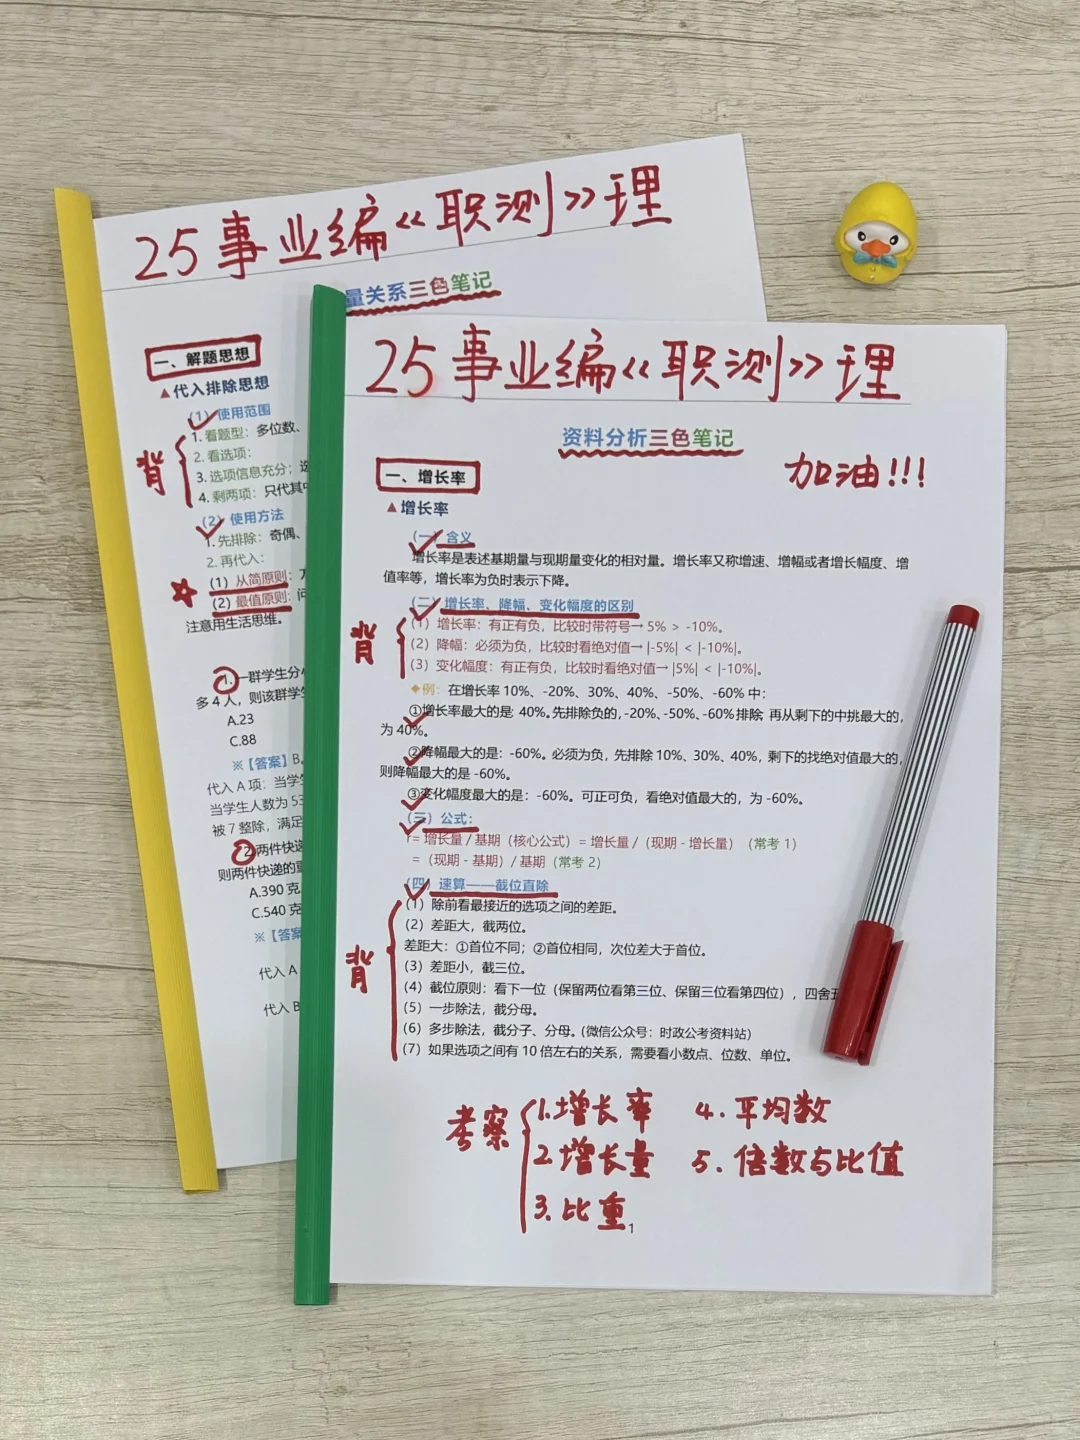 25事业编《职测》理
量关系三色笔记
一、解题思想
▲代入排除思想
(1)使用范围
1. 看题型：多位数、
2. 看选项：
3. 选项信息充分；
4. 剩两项：只代其中
背
(2)使用方法
1. 先排除：奇偶、
2. 再代入：
(1) 从简原则：
(2) 最值原则：问
注意用生活思维。
1. 一群学生分
多4人，则该群学生
A.23
C.88
※【答案】B。
代入 A 项：当学生
当学生人数为 53
被 7 整除，满足
2 两件快递
则两件快递的重
A.390 克
C.540 克
※【答案
代入 A
代入 B
25事业编《职测》理
资料分析三色笔记
加油!!!
一、增长率
▲增长率
(一)含义
增长率是表述基期量与现期量变化的相对量。增长率又称增速、增幅或者增长幅度、增
值率等，增长率为负时表示下降。
(二)增长率、降幅、变化幅度的区别
背
(1) 增长率：有正有负，比较时带符号→5% > -10%。
(2) 降幅：必须为负，比较时看绝对值→|-5%| < |-10%|。
(3) 变化幅度：有正有负，比较时看绝对值→|5%| < |-10%|。
◆例：在增长率 10%、-20%、30%、40%、-50%、-60% 中：
①增长率最大的是：40%。先排除负的，-20%、-50%、-60%排除，再从剩下的中挑最大的，
为 40%。
②降幅最大的是：-60%。必须为负，先排除 10%、30%、40%，剩下的找绝对值最大的，
则降幅最大的是 -60%。
③变化幅度最大的是：-60%。可正可负，看绝对值最大的，为 -60%。
(三)公式：
r= 增长量 / 基期（核心公式）= 增长量 /（现期 - 增长量）（常考 1）
=（现期 - 基期）/ 基期（常考 2）
(四)速算——截位直除
背
(1) 除前看最接近的选项之间的差距。
(2) 差距大，截两位。
差距大：①首位不同；②首位相同，次位差大于首位。
(3) 差距小，截三位。
(4) 截位原则：看下一位（保留两位看第三位、保留三位看第四位），四舍五
(5) 一步除法，截分母。
(6) 多步除法，截分子、分母。（微信公众号：时政公考资料站）
(7) 如果选项之间有 10 倍左右的关系，需要看小数点、位数、单位。
考察
1.增长率 4.平均数
2.增长量 5.倍数与比值
3.比重
1